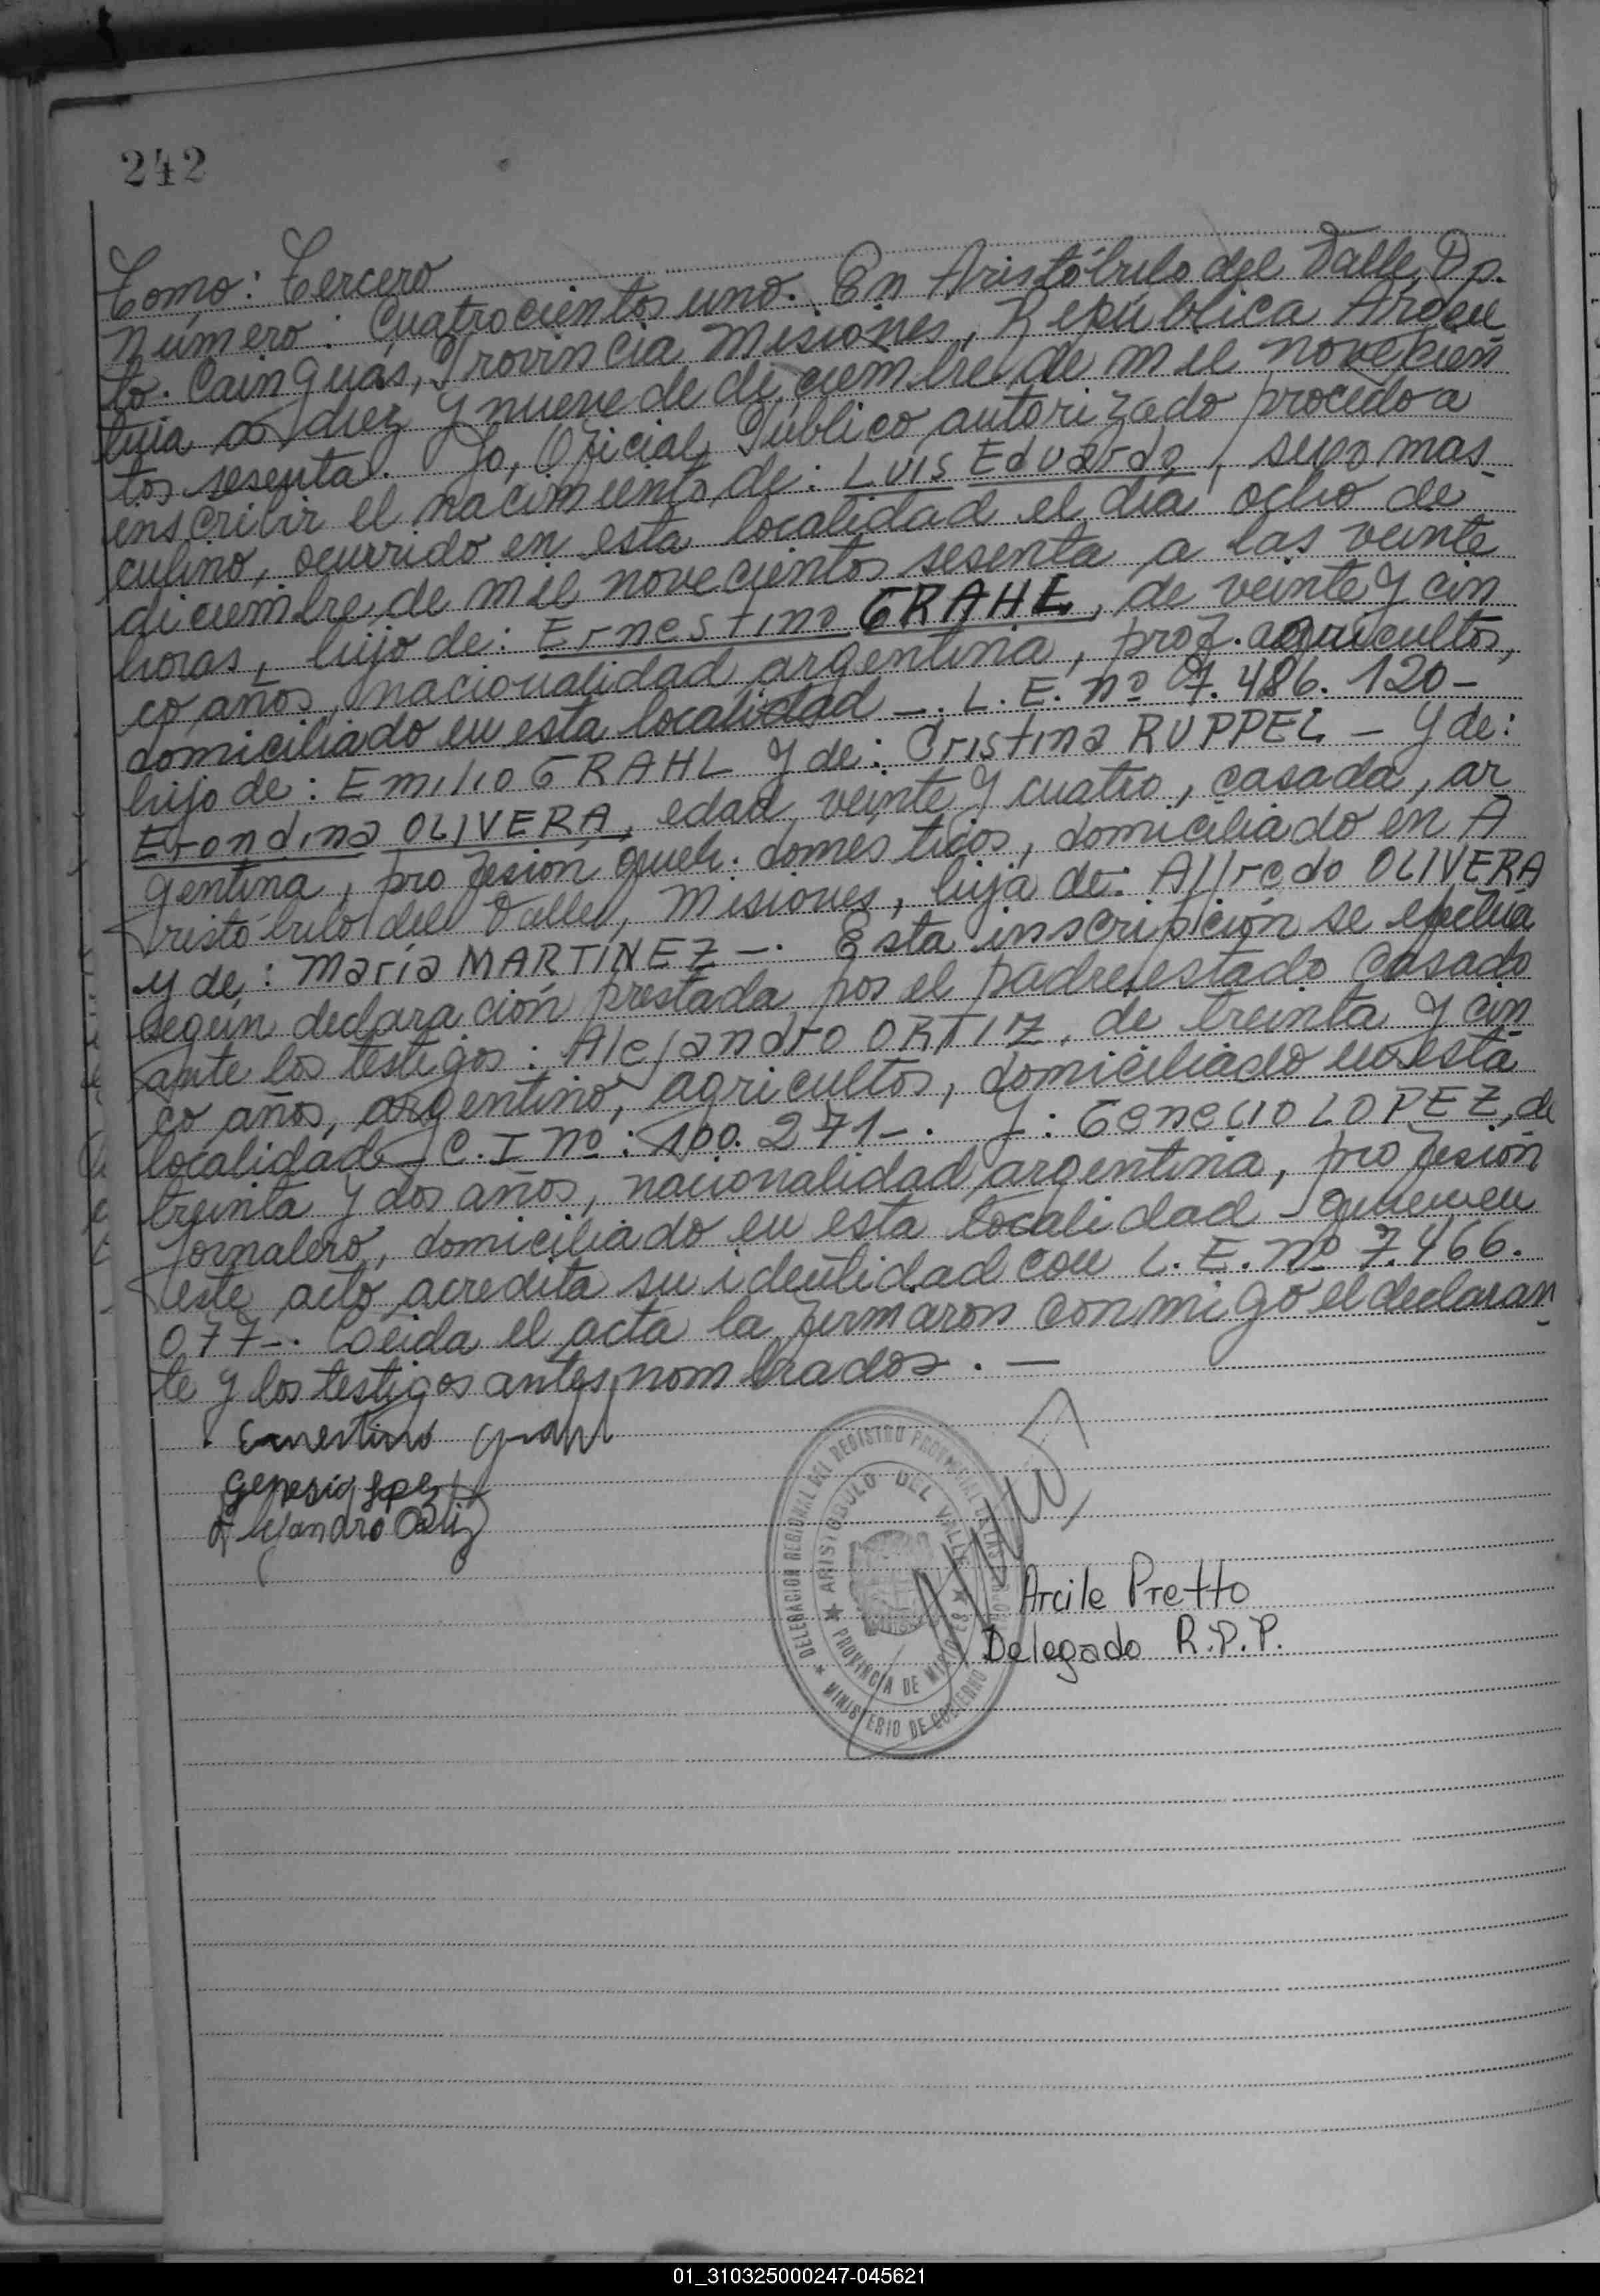 242
Tomo: Tercero
Número: Cuatrocientos uno. En Aristóbulo del Valle, Dp.
to. Cainguás, Provincia Misiones, República Argen
tina a diez y nueve de diciembre de mil novecien
tos sesenta. Yo, Oficial Público autorizado procedo a
inscribir el nacimiento de: Luis Eduardo, sexo mas_
culino, ocurrido en esta localidad el día ocho de
diciembre de mil novecientos sesenta a las veinte
horas, hijo de: Ernestino GRAHL, de veinte y cin
co años, nacionalidad argentina, prof. agricultor,
domiciliado en esta localidad -. L.E. nº 7.486.120-
hijo de: Emilio GRAHL y de: Cristina RUPPEL - y de:
Erondina OLIVERA, edad veinte y cuatro, casada, ar
gentina, profesión queh. domésticos, domiciliado en A
ristóbulo del Valle, Misiones, hija de: Alfredo OLIVERA
y de: María MARTÍNEZ -. Esta inscripción se efectúa
según declaración prestada por el padre, estado casado
ante los testigos: Alejandro ORTIZ, de treinta y cin
co años, argentino, agricultor, domiciliado en esta
localidad - C.I nº: 100.271-. Y: Genecio LOPEZ, de
treinta y dos años, nacionalidad argentina, profesión
jornalero, domiciliado en esta localidad - quien en
este acto acredita su identidad con L.E. nº 7.466.
077-. Leída el acta la firmaron conmigo el declaran_
te y los testigos antes nombrados. -
Ernestino Grahl
Genesio Lopez
Alejandro Ortiz
DELEGACION REGIONAL DEL REGISTRO PROVINCIAL DE LAS
MINISTERIO DE GOBIERNO
ARISTOBULO DEL VALLE
PROVINCIA DE MISIONES
Arcile Pretto
Delegado R.P.P.
01_310325000247-045621